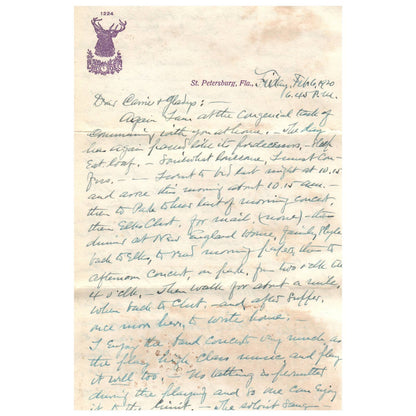 1224
St. Petersburg, Fla., Friday, Feb 6, 1920
6.45 P.M.
Dear Carrie & Gladys:-
Again I am at the Congenial task of
Communing with you at home. - The day
has again passed like its predecessors, - Sleep
Eat Loaf. - Somewhat tiresome, I must Con-
fess. - I went to bed last night at 10.15
and arose this morning about 10.15 a.m. -
then to Park to hear last of morning concert,
then Elks Club, for mail (none) - then
dinner at New England House, family style
back to Elks, to read morning paper, then to
afternoon concert, in park, from two o'clk to
4 o'clk, - Then walk for about a mile,
then back to Club - and after supper,
once more here, to write home.
I enjoy the Band Concerts very much as
they play high class music and play
it well too. - No betting is permitted
during the playing and so one can enjoy
it to the limit. - The